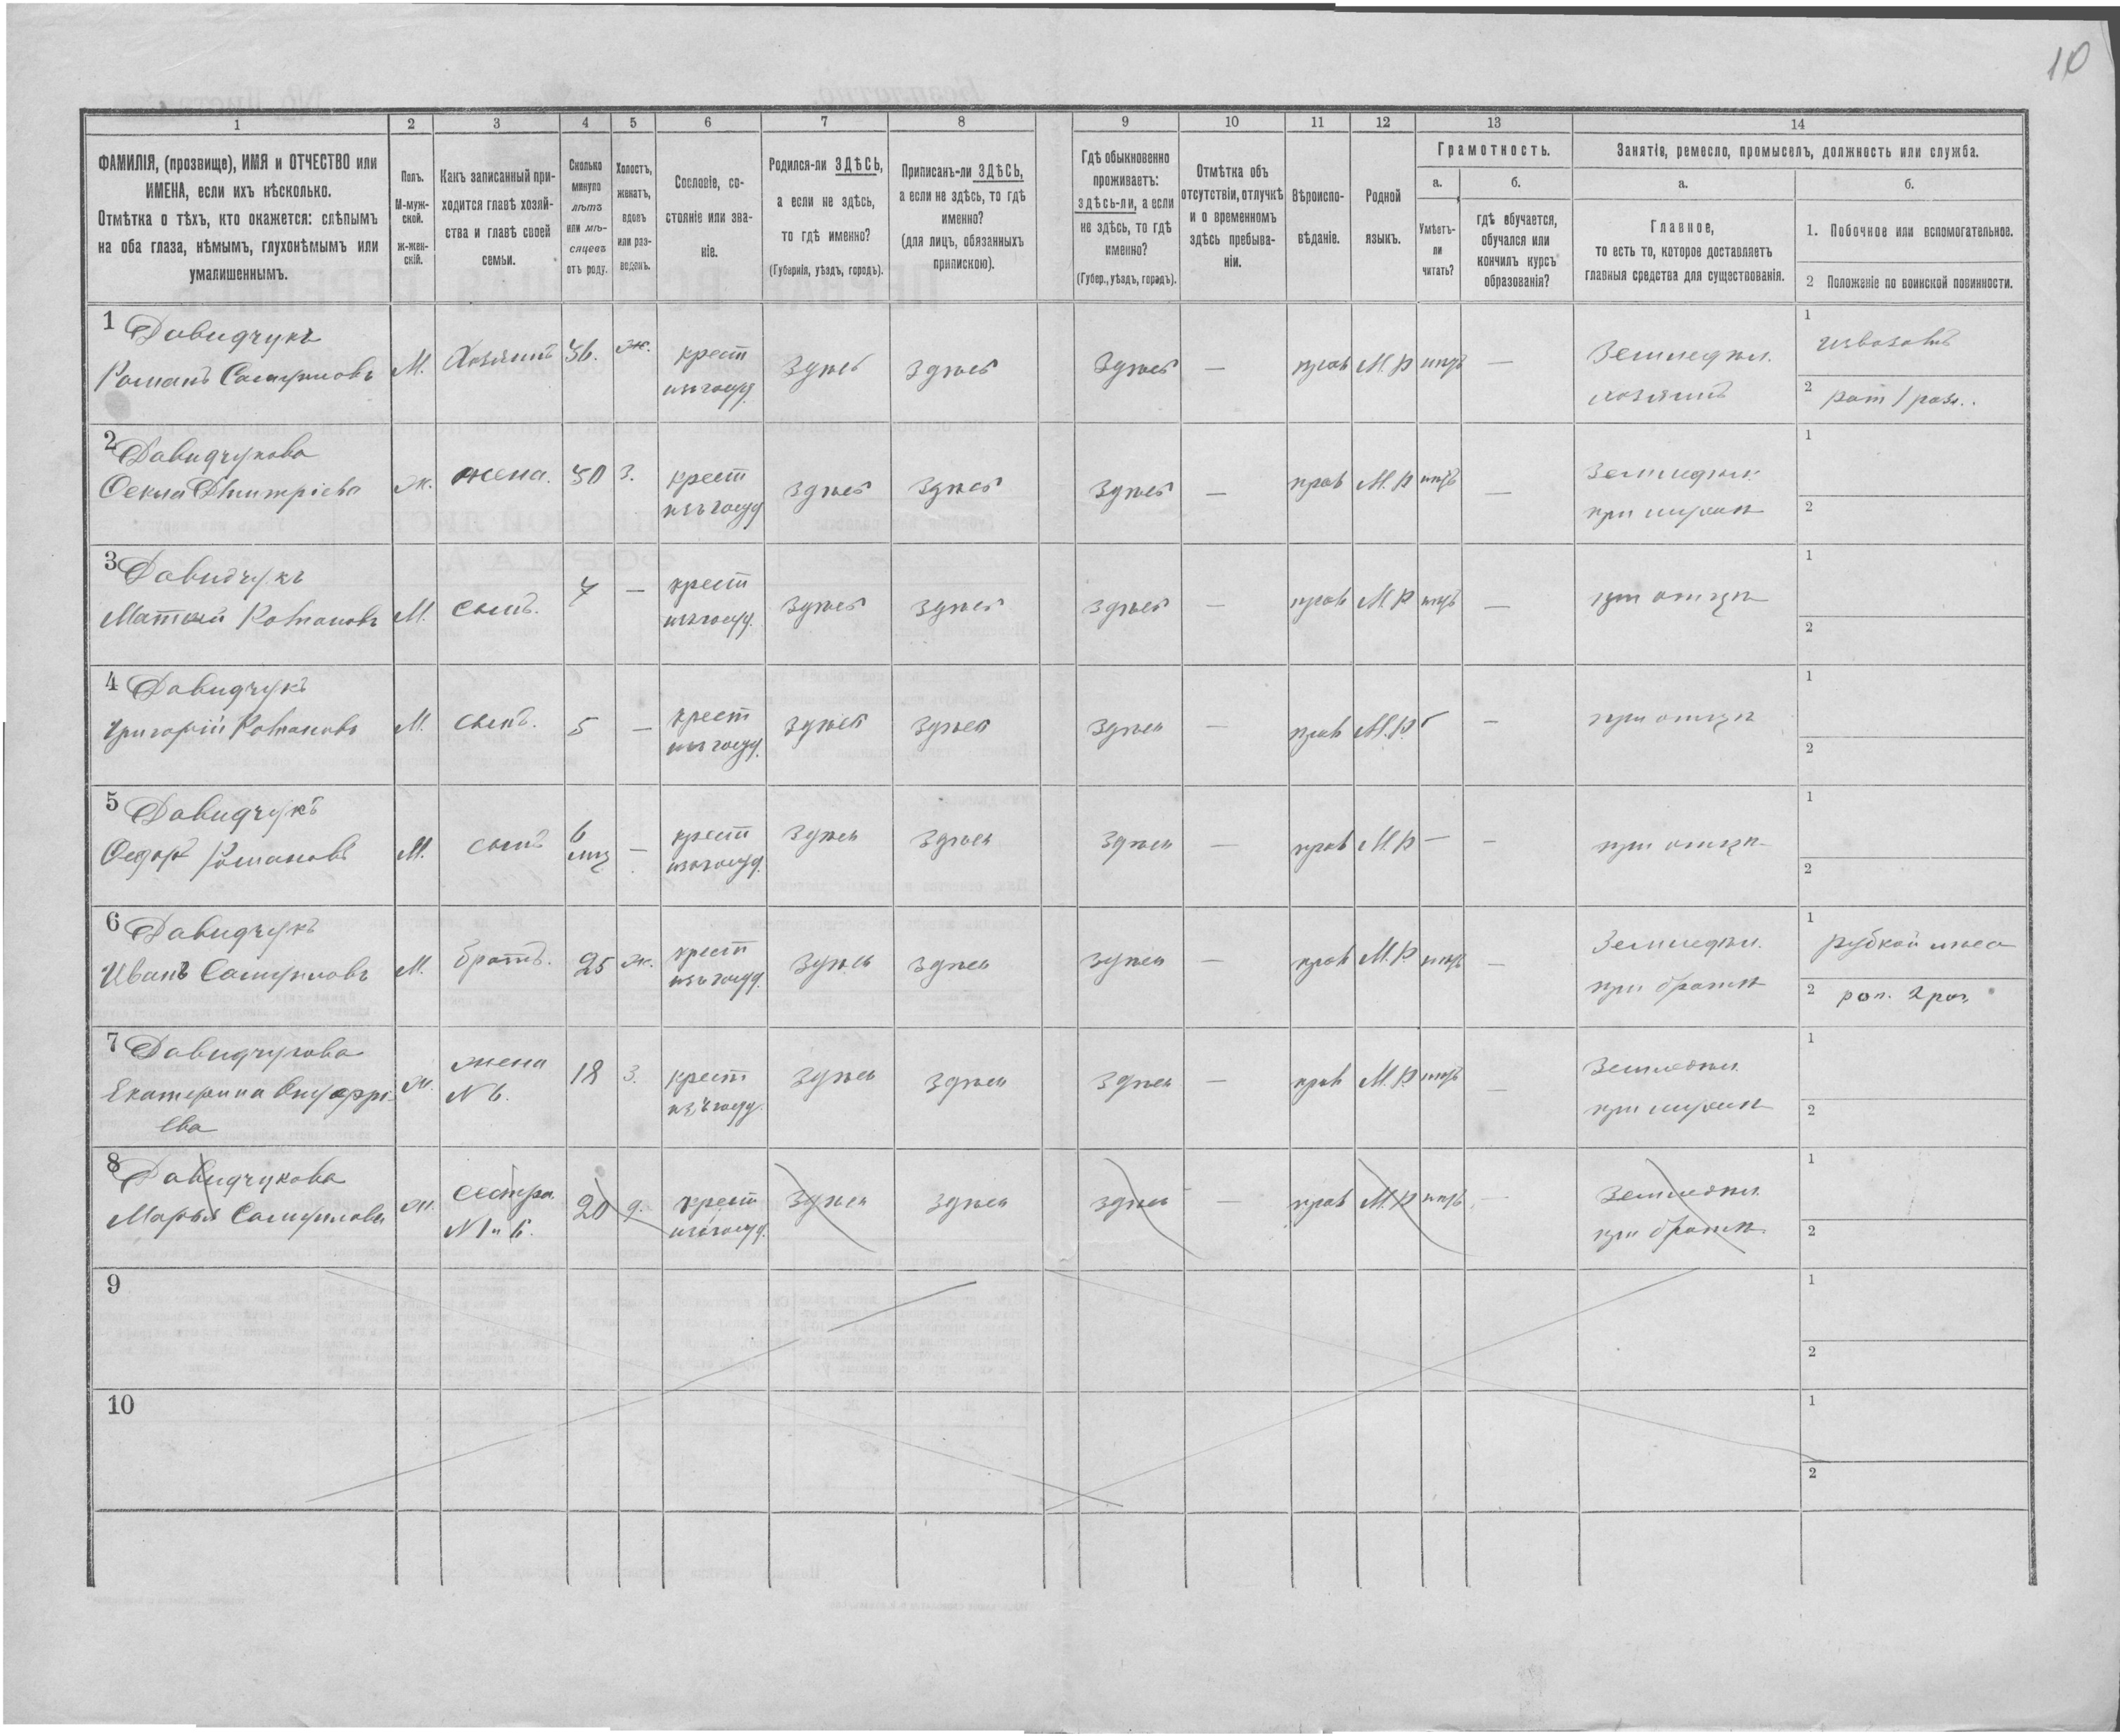 10
1 2 3 4 5 6 7 8 9 10 11 12 13 14
ФАМИЛІЯ, (прозвище), ИМЯ и ОТЧЕСТВО или
ИМЕНА, если ихъ нѣсколько.
Отмѣтка о тѣхъ, кто окажется: слѣпымъ
на оба глаза, нѣмымъ, глухонѣмымъ или
умалишеннымъ.
Полъ.
М-муж-
ской.
ж-жен-
скій.
Какъ записанный при-
ходится главѣ хозяй-
ства и главѣ своей
семьи.
Сколько
минуло
лѣтъ
или мѣ-
сяцевъ
отъ роду.
Холостъ,
женатъ,
вдовъ
или раз-
веденъ.
Сословіе, со-
стояніе или зва-
ніе.
Родился-ли ЗДѢСЬ,
а если не здѣсь,
то гдѣ именно?
(Губернія, уѣздъ, городъ).
Приписанъ-ли ЗДѢСЬ,
а если не здѣсь, то гдѣ
именно?
(для лицъ, обязанныхъ
припискою).
Гдѣ обыкновенно
проживаетъ:
здѣсь-ли, а если
не здѣсь, то гдѣ
именно?
(Губер., уѣздъ, городъ).
Отмѣтка объ
отсутствіи, отлучкѣ
и о временномъ
здѣсь пребыва-
ніи.
Вѣроиспо-
вѣданіе.
Родной
языкъ.
Грамотность.
а.
Умѣетъ-
ли
читать?
б.
гдѣ обучается,
обучался или
кончилъ курсъ
образованія?
Занятіе, ремесло, промыселъ, должность или служба.
а.
Главное,
то есть то, которое доставляетъ
главныя средства для существованія.
б.
1. Побочное или вспомогательное.
2 Положеніе по воинской повинности.
1 Давидчукъ
Романъ Самуиловъ М. Хозяинъ 36. ж. крест здѣсь здѣсь здѣсь — прав М.Р нѣтъ — Земледѣл. 1 извозомъ
изъ госуд. хозяинъ 2
2 Давидчукова
Ѳекла Дмитріева ж. жена. 30 З. крест здѣсь здѣсь здѣсь — прав М.Р нѣтъ — Земледѣл. 1
изъ госуд при мужѣ 2
3 Давидчукъ
Матвей Романовъ М. сынъ. 7 — крест здѣсь здѣсь здѣсь — прав М.Р нѣтъ — при отцѣ 1
изъ госуд. 2
4 Давидчукъ
Григорій Романовъ М. сынъ. 5 — крест здѣсь здѣсь здѣсь — прав М.Р. — при отцѣ 1
изъ госуд. 2
5 Давидчукъ
Ѳедоръ Романовъ М. сынъ 6 мѣц — крест здѣсь здѣсь здѣсь прав М.Р — — при отцѣ 1
изъ госуд. 2
6 Давидчукъ
Иванъ Самуиловъ М. братъ. 25 ж. крест здѣсь здѣсь здѣсь — прав М.Р. нѣтъ — Земледѣл. 1 рубкой лѣса
изъ госуд. при братѣ 2
7 Давидчукова
Екатерина Онуфрі- ж. жена 18 З. крест здѣсь здѣсь здѣсь — прав М.Р. нѣтъ — Земледѣл. 1
ева N 6. изъ госуд. при мужѣ 2
8 Давидчукова
Марья Самуилова ж. сестра 20 д. крест здѣсь здѣсь здѣсь — прав М.Р нѣтъ — Земледѣл. 1
N 1 и 6. изъ госуд. при братѣ 2
9 1
2
10 1
2